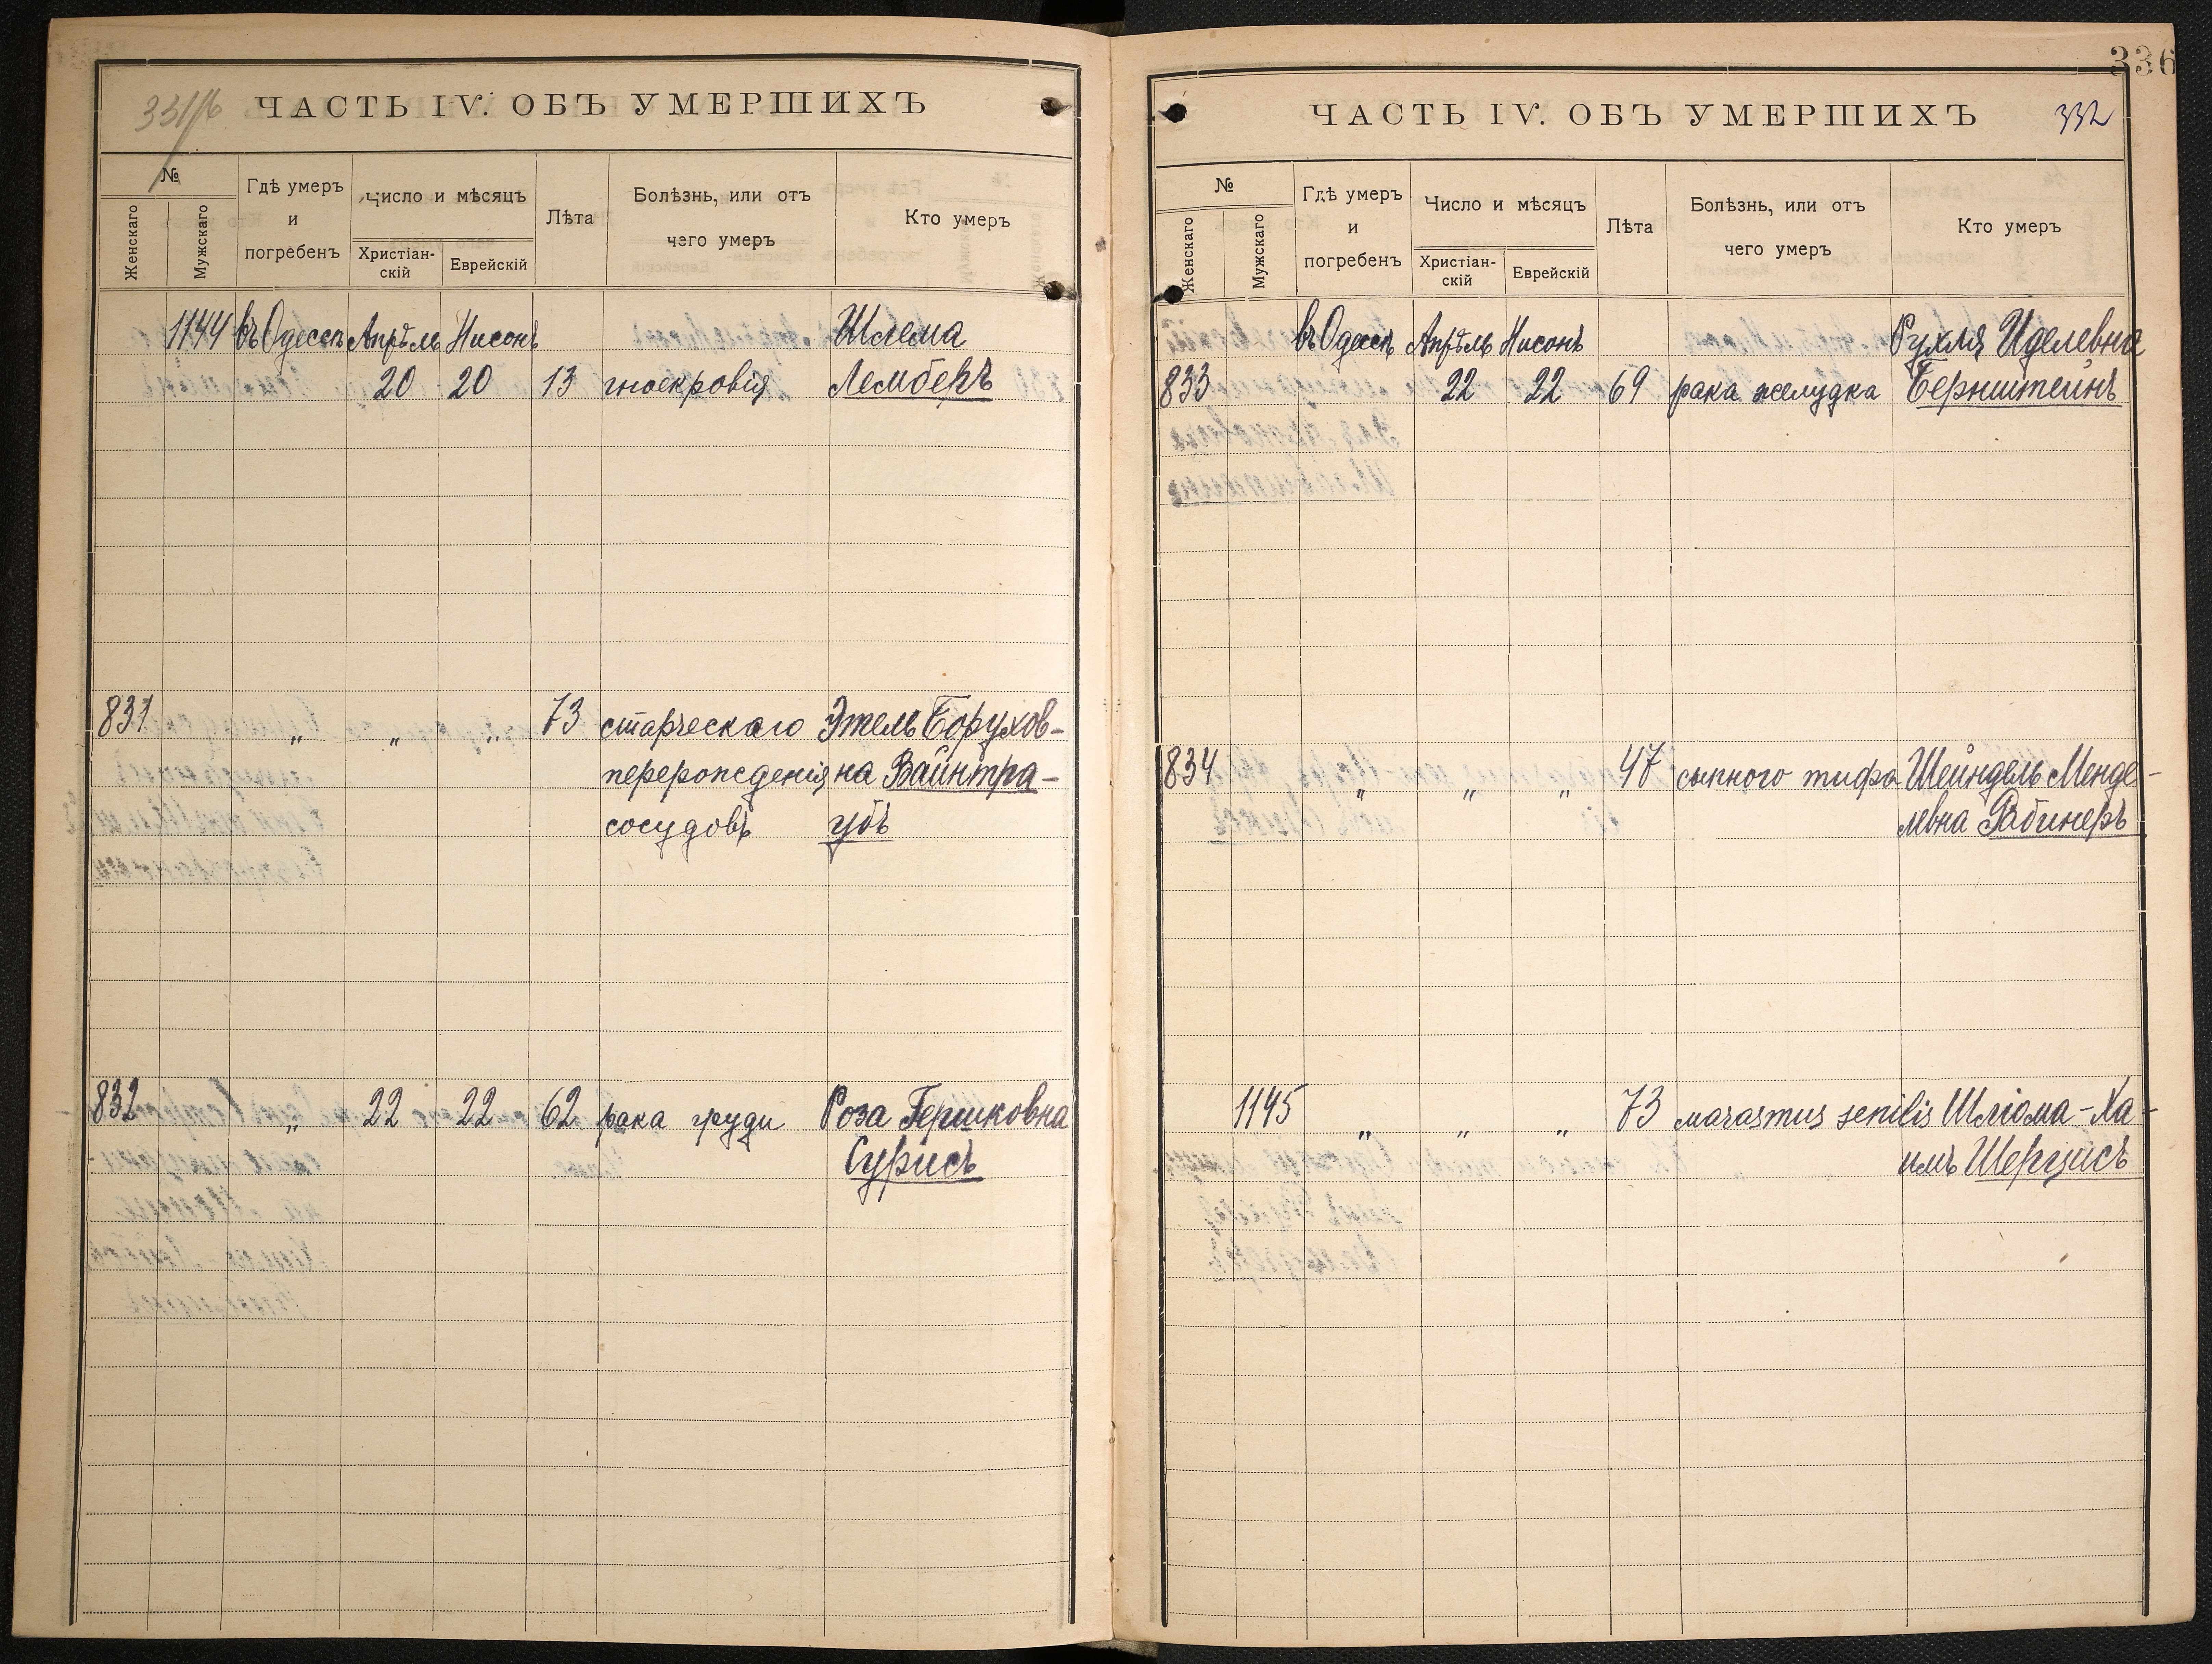 331/б
ЧАСТЬ IV. ОБЪ УМЕРШИХЪ
№
Женскаго
Мужскаго
Гдѣ умеръ
и
погребенъ
Число и мѣсяцъ
Христіан-
скій
Еврейскій
Лѣта
Болѣзнь, или отъ
чего умеръ
Кто умеръ
1144 въ Одессѣ Апрѣль Нисонъ Шлема
20 20 13 гноекровія Лембекъ
831 „ „ „ 73 старческаго Этель Борухов-
перерожденія на Вайнтра-
сосудовъ убъ
832 „ 22 22 62 рака груди Роза Гершковна
Сурисъ
336
ЧАСТЬ IV. ОБЪ УМЕРШИХЪ 332
№
Женскаго
Мужскаго
Гдѣ умеръ
и
погребенъ
Число и мѣсяцъ
Христіан-
скій
Еврейскій
Лѣта
Болѣзнь, или отъ
чего умеръ
Кто умеръ
въ Одессѣ Апрѣль Нисонъ Рухля Иделевна
833 22 22 69 рака желудка Бернштейнъ
834 „ „ „ 47 сыпного тифа Шейндель Менде-
левна Рабинеръ
1145 „ „ „ 73 marasmus senilis Шліома-Ха-
имъ Шерцисъ